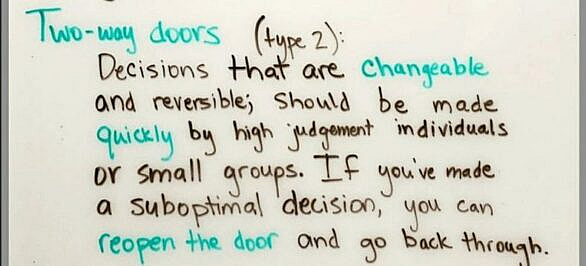 Two-way doors (type 2):
Decisions that are changeable
and reversible; should be made
quickly by high judgement individuals
or small groups. If you've made
a suboptimal decision, you can
reopen the door and go back through.